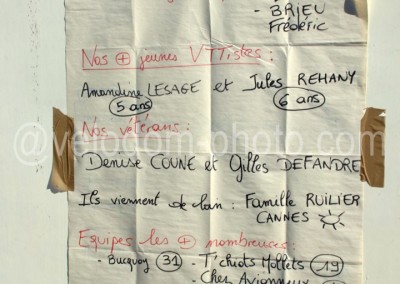 - BRIEU
Frédéric
Nos ⊕ jeunes VTTistes :
Amandine LESAGE et Jules REHANY
5 ans 6 ans
Nos vétérans :
Denise COUNE et Gilles DEFANDRE
Ils viennent de loin : Famille RUILIER
CANNES
Equipes les ⊕ nombreuses :
- Bucquoy 31 - T'chiots Mollets 19
- Chez Avionneux